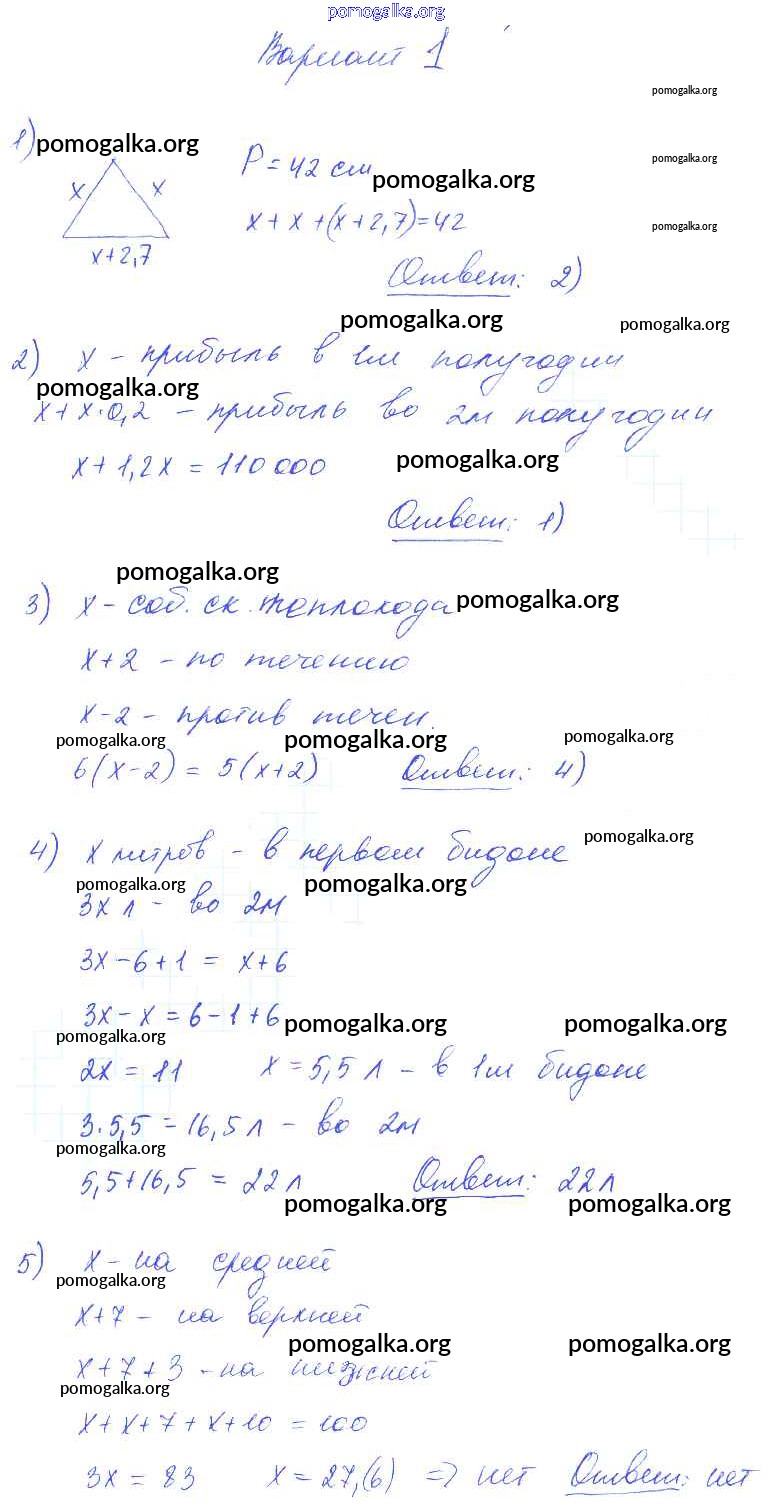 pomogalka.org
Вариант 1
pomogalka.org
1) pomogalka.org
pomogalka.org
P = 42 см
pomogalka.org
x x
x + x + (x + 2,7) = 42
pomogalka.org
x+2,7
Ответ: 2)
pomogalka.org pomogalka.org
2) x – прибыль в 1м полугодии
pomogalka.org
x + x·0,2 – прибыль во 2м полугодии
x + 1,2x = 110 000
pomogalka.org
Ответ: 1)
pomogalka.org
3) x – соб. ск. теплохода
pomogalka.org
x+2 – по течению
x-2 – против течен.
pomogalka.org pomogalka.org pomogalka.org
6(x-2) = 5(x+2) Ответ: 4)
pomogalka.org
4) x литров – в первом бидоне
pomogalka.org pomogalka.org
3x л – во 2м
3x – 6 + 1 = x + 6
3x – x = 6 – 1 + 6
pomogalka.org pomogalka.org
pomogalka.org
2x = 11 x = 5,5 л – в 1м бидоне
3·5,5 = 16,5 л – во 2м
pomogalka.org
5,5 + 16,5 = 22 л Ответ: 22 л
pomogalka.org pomogalka.org
5) x – на средней
pomogalka.org
x+7 – на верхней
pomogalka.org pomogalka.org
x+7+3 – на нижней
pomogalka.org
x + x + 7 + x + 10 = 100
3x = 83 x = 27,(6) => нет Ответ: нет